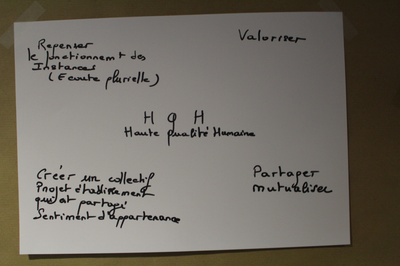 Repenser
le fonctionnement des
Instances
(Ecoute plurielle)
Valoriser
H Q H
Haute qualité Humaine
Créer un collectif
Projet établissement
qui est partagé
Sentiment d'appartenance
Partager
mutualiser